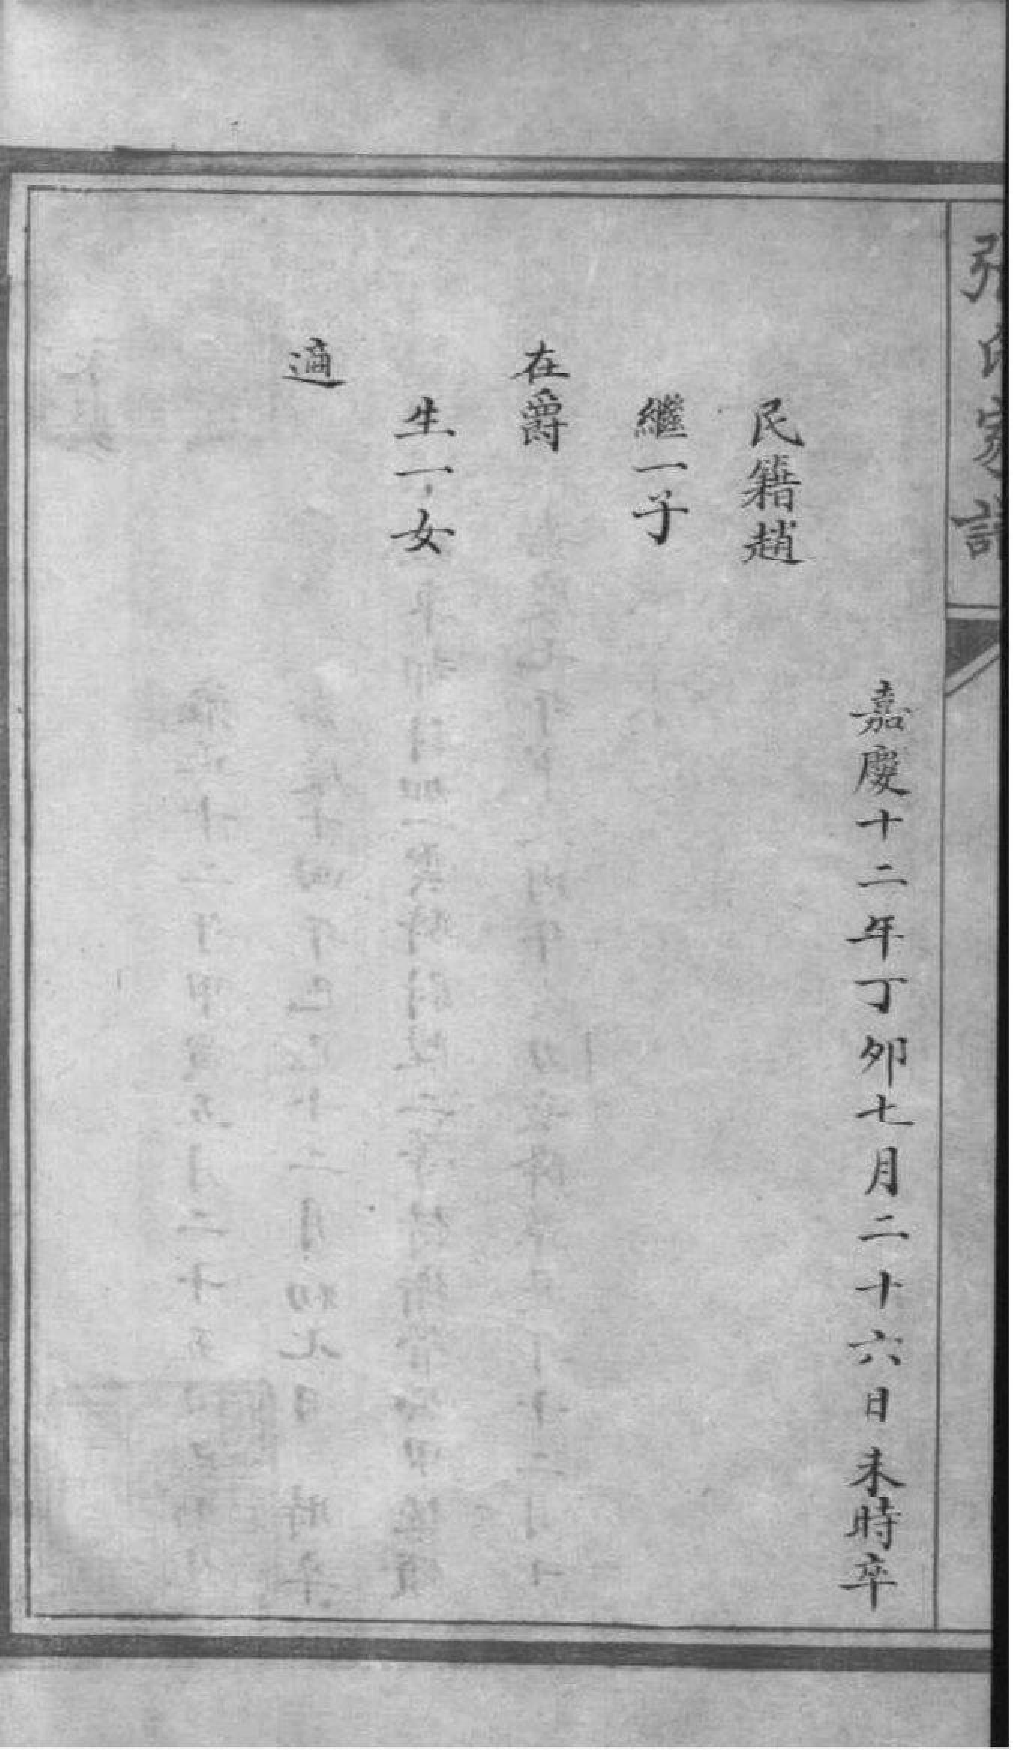 張氏家譜
嘉慶十二年丁卯七月二十六日未時卒
民籍趙
繼一子
在爵
生一女
適